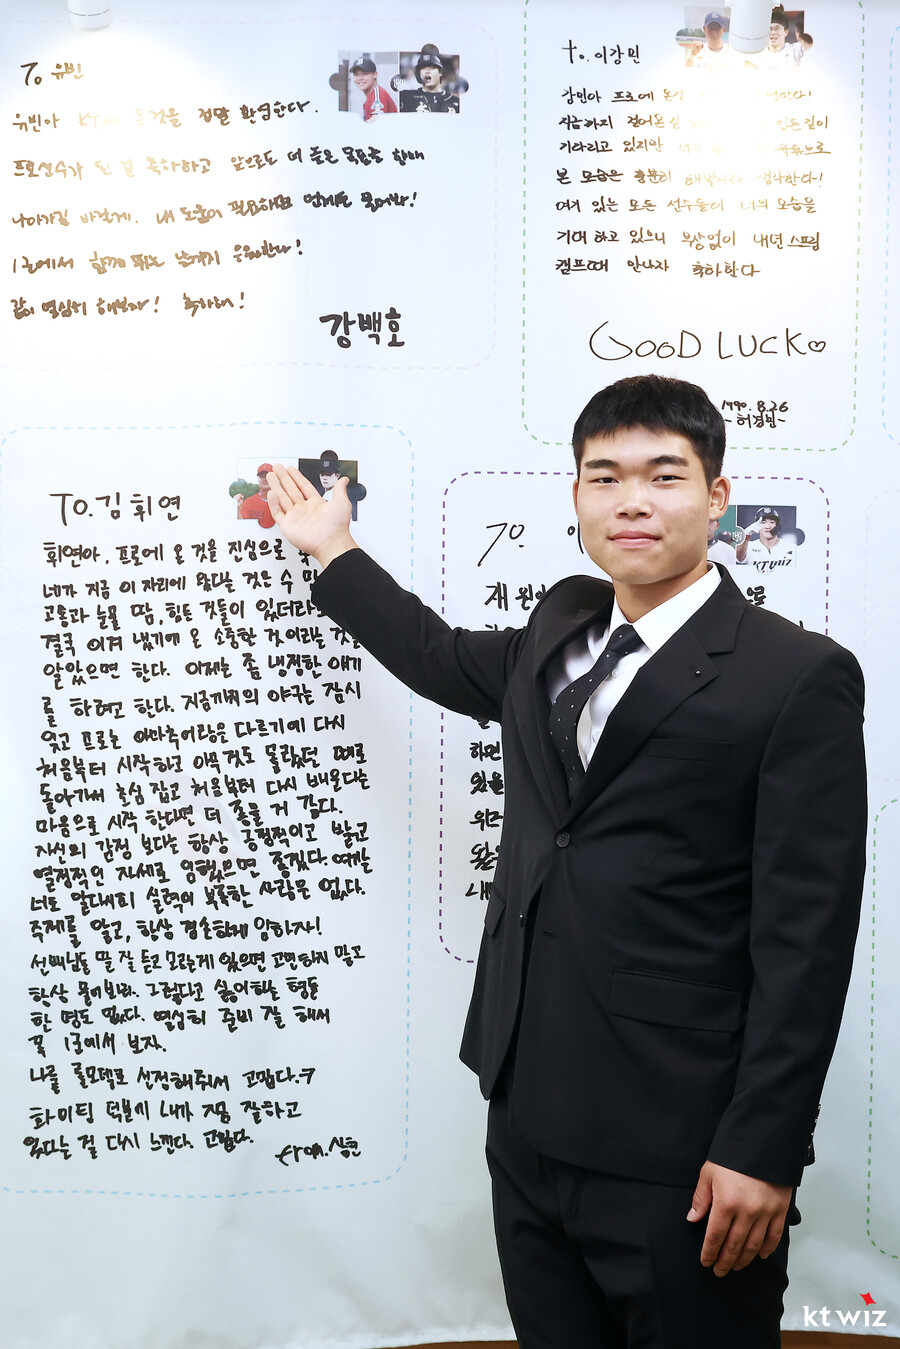 To 유빈
유빈아 KT에 온것을 정말 환영한다.
프로선수가 된 걸 축하하고 앞으로도 더 좋은 목표를 향해
나아가길 바랄게. 내 도움이 필요하면 언제든 물어봐!
1군에서 함께 뛰는 날까지 응원한다!
같이 열심히 해보자! 축하해!
강백호
to. 이강민
강민아 프로에 온
지금까지 걸어온
기다리고 있지만
본 모습은 충분히 생각한다!
여기 있는 모든 선수들이 너의 모습을
기대하고 있으니 부상없이 내년 스프링
캠프때 만나자 축하한다
GOOD LUCK♡
1990. 8. 26
-허경민-
To. 김휘연
휘연아, 프로에 온 것을 진심으로
네가 지금 이 자리에 왔다는 것은 수
고통과 눈물 땀, 힘든 것들이 있더라도
결국 이겨 냈기에 온 소중한 것이라는 것을
알았으면 한다. 이제는 좀 냉정한 얘기
를 하려고 한다. 지금까지의 야구는 잠시
잊고 프로는 아마추어랑은 다르기에 다시
처음부터 시작하고 아무것도 몰랐던 때로
돌아가서 초심 잡고 처음부터 다시 배운다는
마음으로 시작 한다면 더 좋을 거 같다.
자신의 감정 보다는 항상 긍정적이고 밝고
열정적인 자세로 임했으면 좋겠다. 여기는
너도 알다시피 실력이 부족한 사람은 없다.
주제를 알고, 항상 겸손하게 임하자!
선배님들 말 잘 듣고 모르는게 있으면 고민하지 말고
항상 물어보라. 그렇다고 싫어하는 형들
한 명도 없다. 열심히 준비 잘 해서
꼭 1군에서 보자.
나를 롤모델로 선정해줘서 고맙다.ㅋ
화이팅 덕분에 내가 지금 잘하고
있다는 걸 다시 느낀다. 고맙다.
from. 상현
To. 이
재원아
으로
하면
있을
위
내
kt wiz
kt wiz